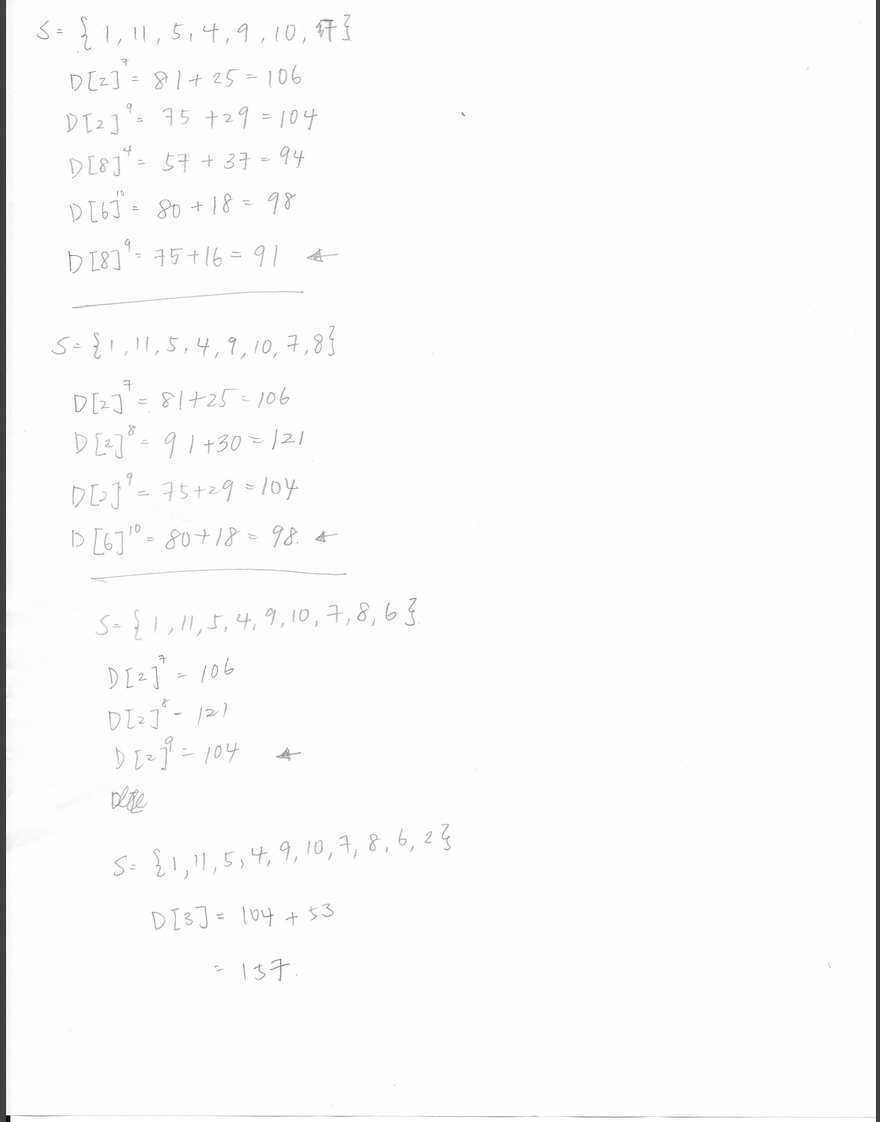 S = { 1, 11, 5, 4, 9, 10, 7}
D[2]⁷ = 81 + 25 = 106
D[2]⁹ = 75 + 29 = 104
D[8]⁴ = 57 + 37 = 94
D[6]¹⁰ = 80 + 18 = 98
D[8]⁹ = 75 + 16 = 91 ←
S = {1, 11, 5, 4, 9, 10, 7, 8}
D[2]⁷ = 81 + 25 = 106
D[2]⁸ = 91 + 30 = 121
D[2]⁹ = 75 + 29 = 104
D[6]¹⁰ = 80 + 18 = 98. ←
S = {1, 11, 5, 4, 9, 10, 7, 8, 6}
D[2]⁷ = 106
D[2]⁸ - 121
D[2]⁹ = 104 ←
S = {1, 11, 5, 4, 9, 10, 7, 8, 6, 2}
D[3] = 104 + 53
= 157.